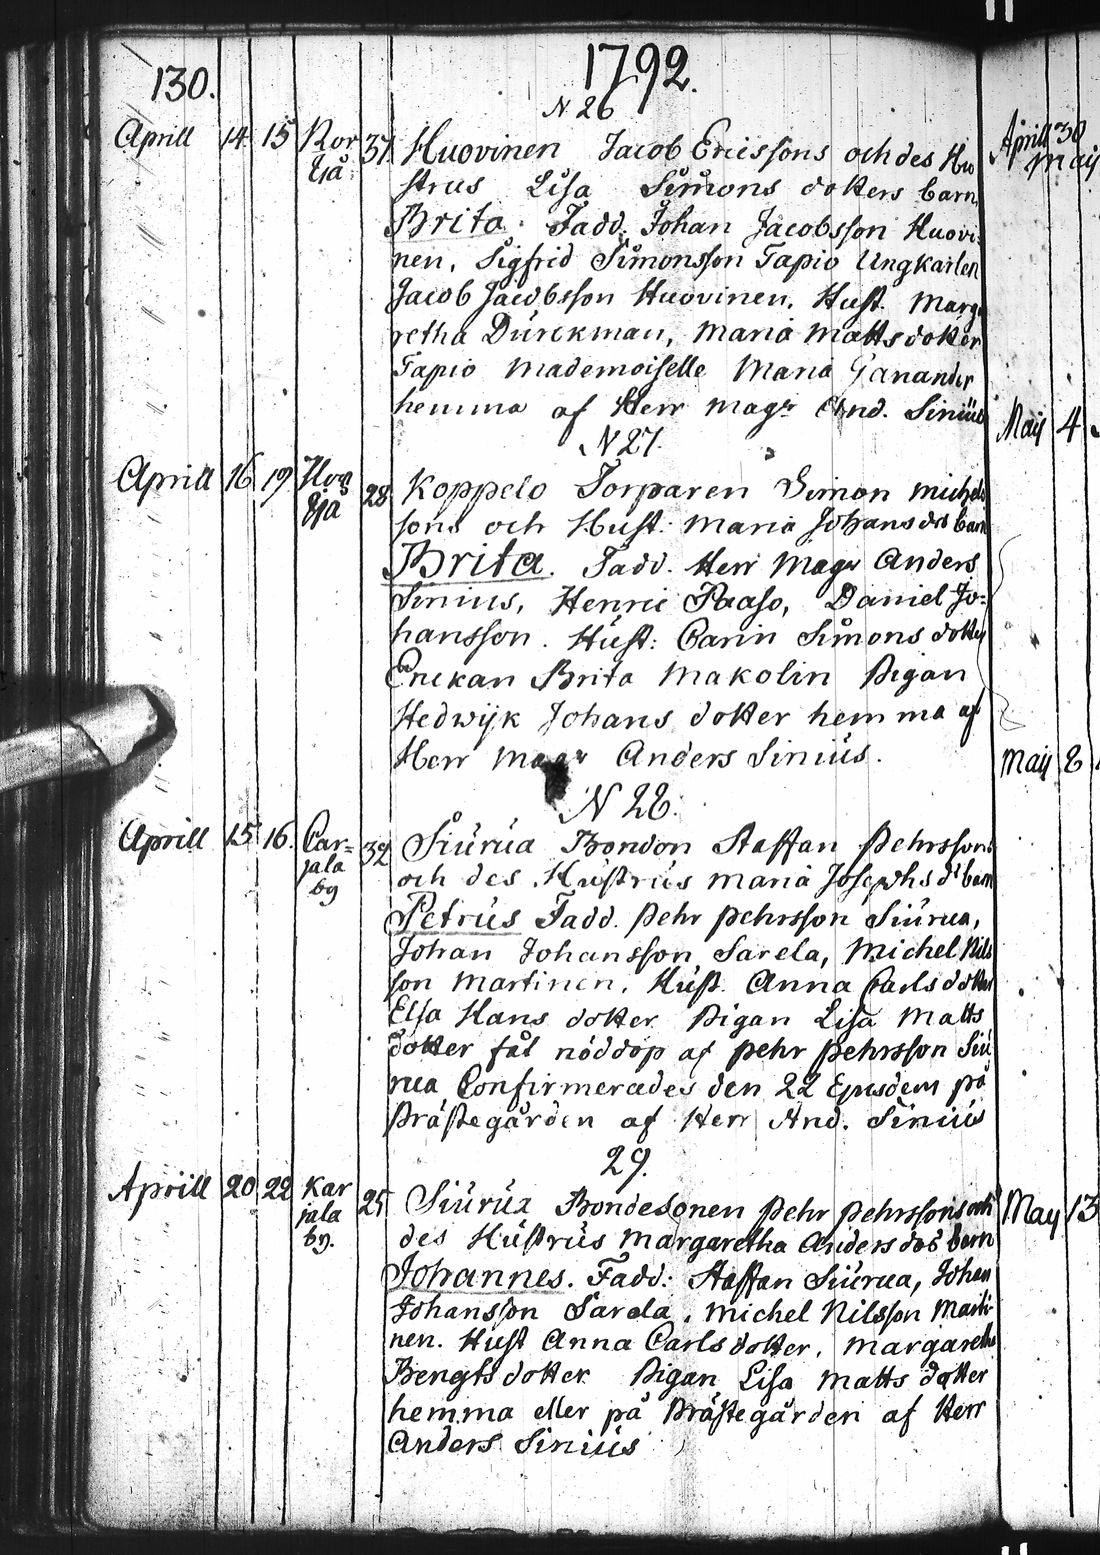 130.
1792.
N 26
Aprill 14 15 Kor 37 Huovinen Jacob Ericssons och des Hu
kjä strus Lisa Simons dotters barn
Brita. Fadd. Johan Jacobsson Huovi-
nen, Sigfrid Simonsson Tapio Ungkarlen
Jacob Jacobsson Huovinen. Hust. Marga
retha Dürckman, Maria Mattsdotter
Tapio Mademoiselle Maria Ganander
hemma af Herr Magr And. Sinius
N 27.
Aprill 16 19 28 Koppelo Torparen Simon Michels
sons och Hust. Maria Johansdrs barn
Brita. Fadd. Herr Magr Anders
Sinius, Henric Paaso, Daniel Jo-
hansson. Hust: Carin Simons dotter
Enckan Brita Makolin Pigan
Hedwijk Johans dotter hemma af
Herr Magr Anders Sinius.
N 28.
Aprill 15 16. Car= 32 Siurua Bondon Staffan Pehrssons
jala och des Hustrus Maria Josephs dr barn
by Petrus Fadd. Pehr Pehrsson Siurua,
Johan Johansson Sarela, Michel Nils
son Martinen, Hust. Anna Carlsdotter
Elsa Hans dotter Pigan Lisa Matts
dotter fåt nöddop af Pehr Pehrsson Siu
rua Confirmerades den 22 Ejusdem på
Prästegården af Herr And. Sinius
29.
Aprill 20 22 Kar 25 Siurua Bondesonen Pehr Pehrssons och
jala des Hustrus Margaretha Anders dos barn
by. Johannes. Fadd: Staffan Siurua, Johan
Johansson Sarela, Michel Nilsson Marti-
nen. Hust Anna Carlsdotter, Margaretha
Bengtsdotter Pigan Lisa Matts dotter
hemma eller på Prästegården af Herr
Anders Sinius
Aprill 30
Maij
Maij 4
Maij 8
May 13